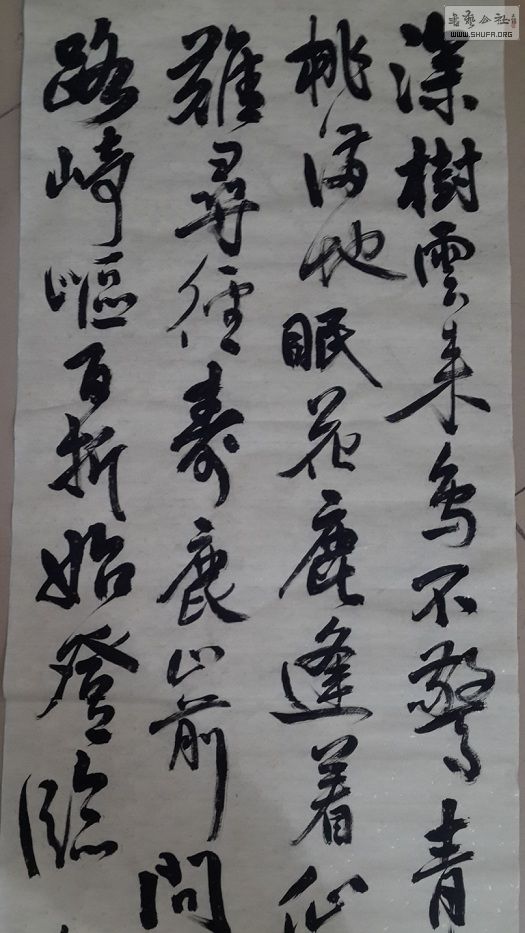 深樹雲来鳥不驚青
桃满地眠花鹿逢着仙
難尋徑壽鹿山前問
路崎嶇百折始登臨
書藝公社
WWW.SHUFA.ORG